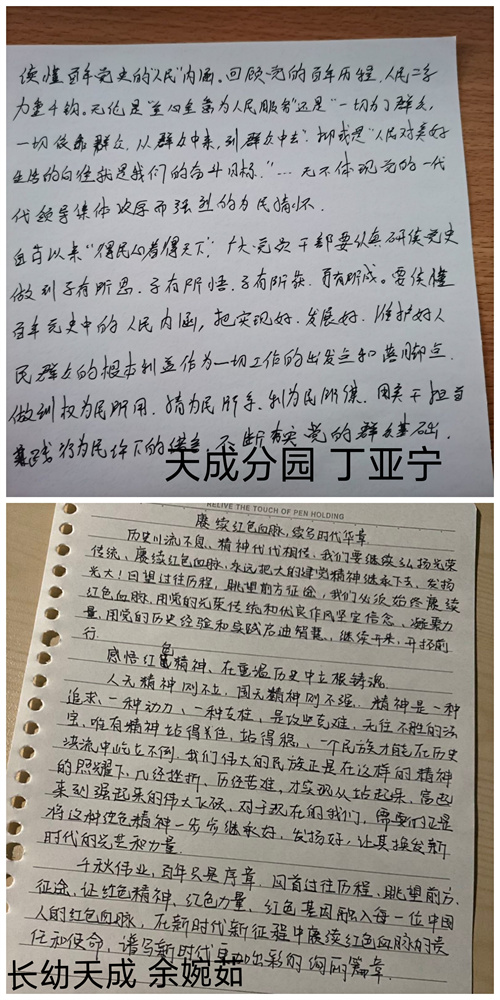 读懂百年党史的“人民”内涵。回顾党的百年历程，人民二字
力重千钧。无论是“全心全意为人民服务”还是“一切为了群众，
一切依靠群众，从群众中来，到群众中去”。抑或是“人民对美好
生活的向往就是我们的奋斗目标。”…无不体现党的一代
代领导集体深厚而强烈的为民情怀。
自古以来“得民心者得天下”。广大党员干部要认真研读党史
做到学有所思、学有所悟、学有所获、更有所成。要读懂
百年党史中的人民内涵，把实现好、发展好、维护好人
民群众的根本利益作为一切工作的出发点和落脚点，
做到权为民所用、情为民所系、利为民所谋，用实干担当
践行为民许下的 不断夯实党的群众基础。
天成分园 丁亚宁
RELIVE THE TOUCH OF PEN HOLDING
赓续红色血脉，续写时代华章
历史川流不息、精神代代相传、我们要继续弘扬光荣
传统、赓续红色血脉，永远把大的建党精神继承下去、发扬
光大！回望过往历程，眺望前方征途，我们必须始终赓续
红色血脉，用党的光荣传统和优良作风坚定信念、凝聚力
量，用党的历史经验和实践启迪智慧、继续开来，开拓前
行。
感悟红色精神、在重温历史中立根铸魂
人无精神则不立，国无精神则不强。精神是一种
追求、一种动力、一种支柱、是攻坚克难，无往不胜的法
宝，唯有精神站得住，站得稳，一个民族才能在历史
洪流中屹立不倒，我们伟大的民族正是在这样的精神
的照耀下，几经挫折、历经苦难，才实现从站起来、富起
来到强起来的伟大飞跃，对于现在的我们，需要们正是
将这种红色精神一步步继承好，发扬好，让其换发新
时代的光芒和力量
千秋伟业，百年只是序章，回首过往历程、眺望前方
征途，让红色精神、红色力量、红色基因融入每一位中国
人的红色血脉，在新时代新征程中赓续红色血脉的责
任和使命，谱写新时代更加出彩的绚丽篇章。
长幼天成 余婉茹